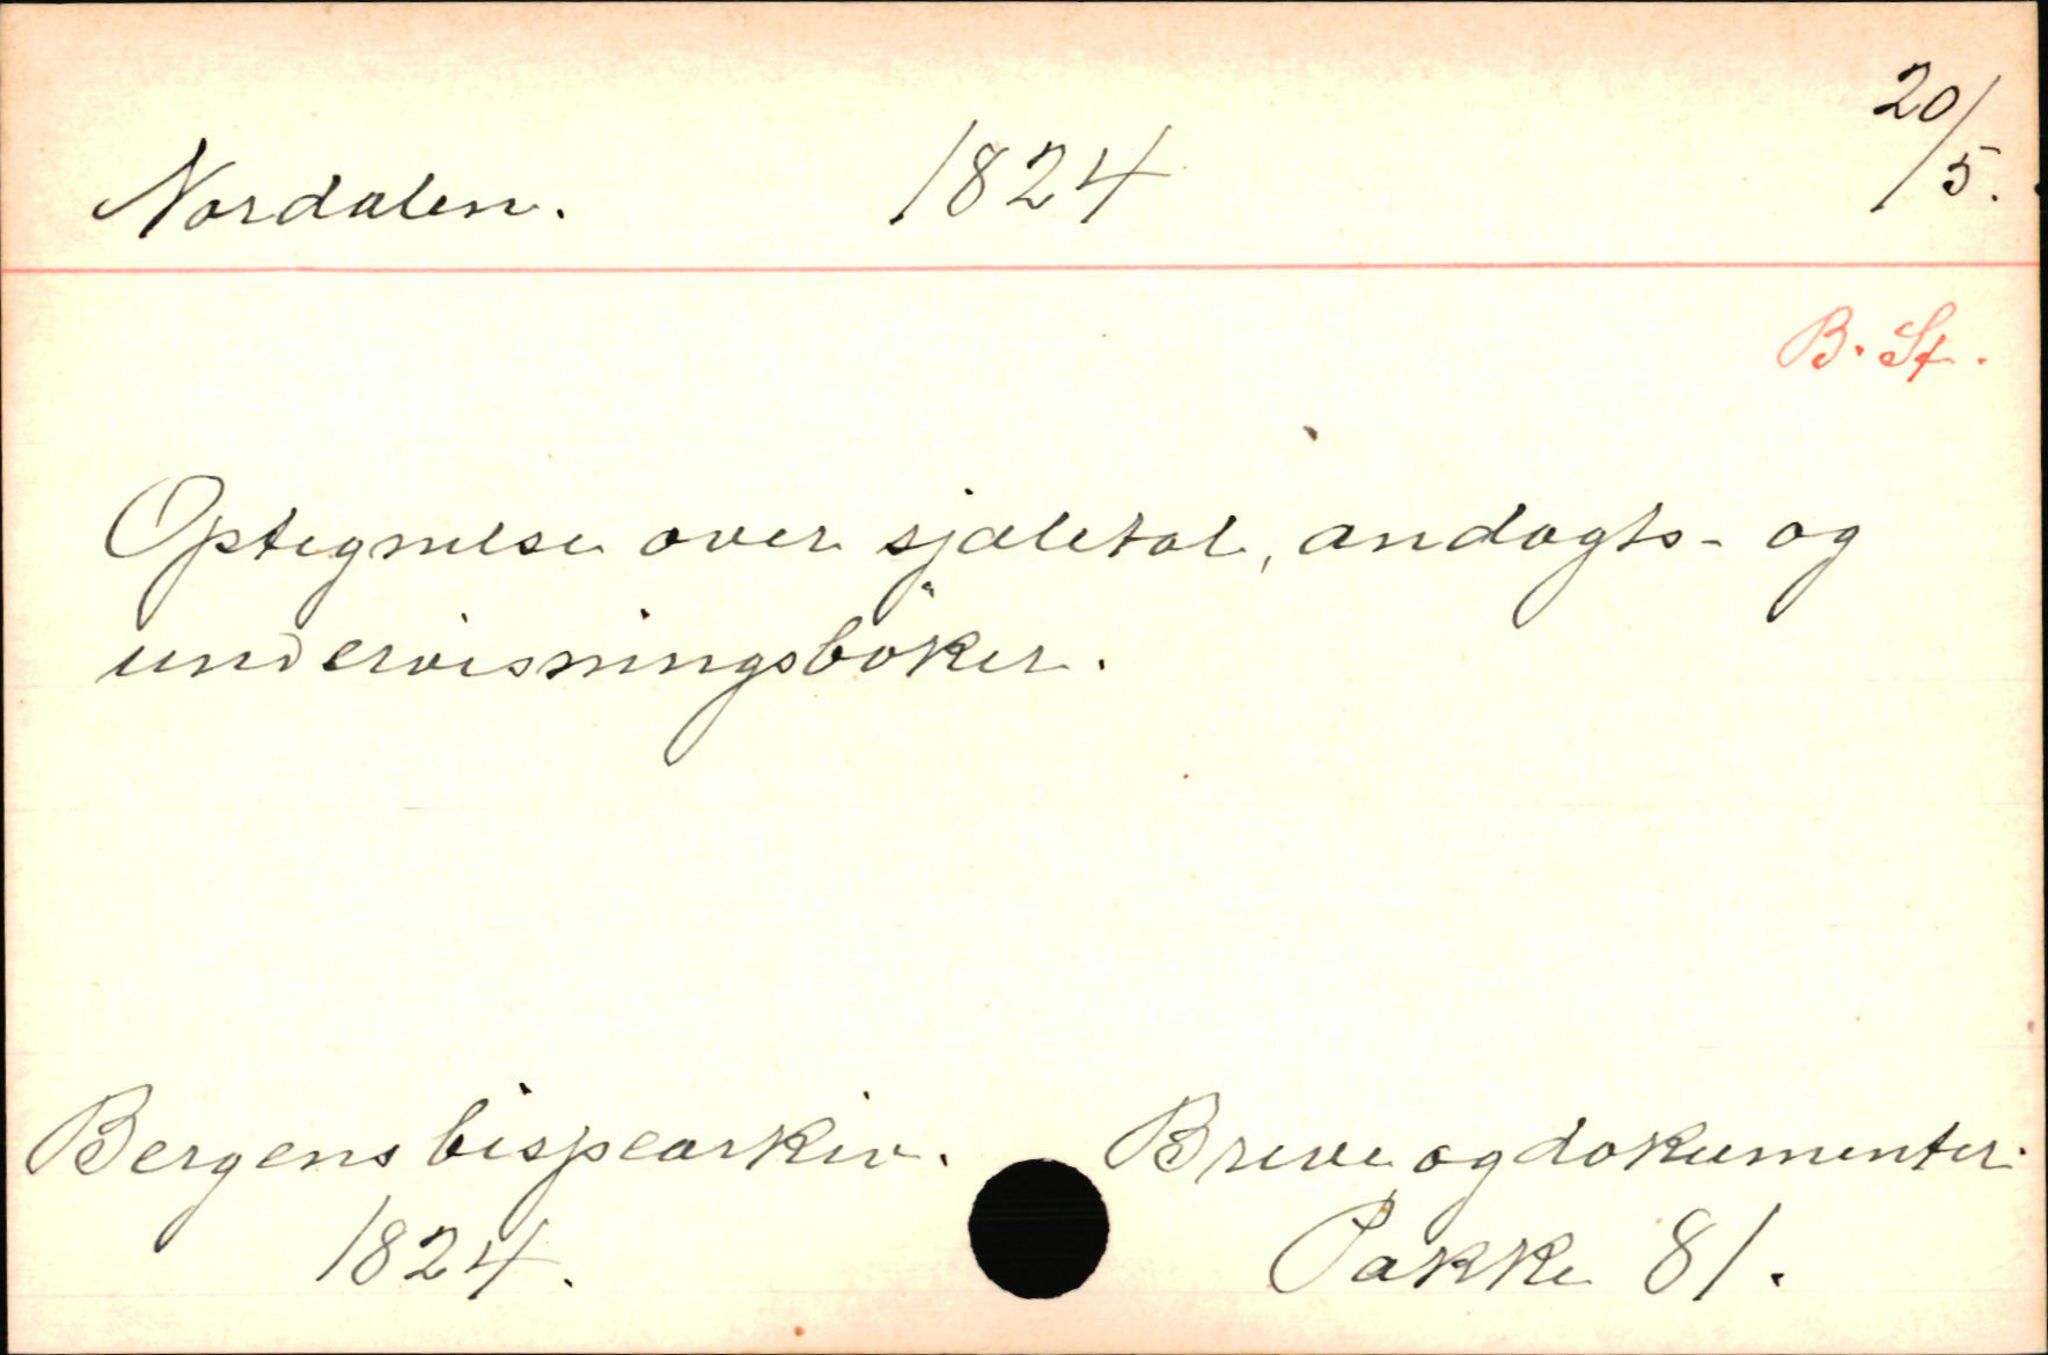 Nordalen. 1824 20/5.
B. St.
Optegnelse over sjæletal, andagts- og
undervisningsböker.
Bergens bispearkiv. Breve og dokumenter.
1824. Pakke 81.